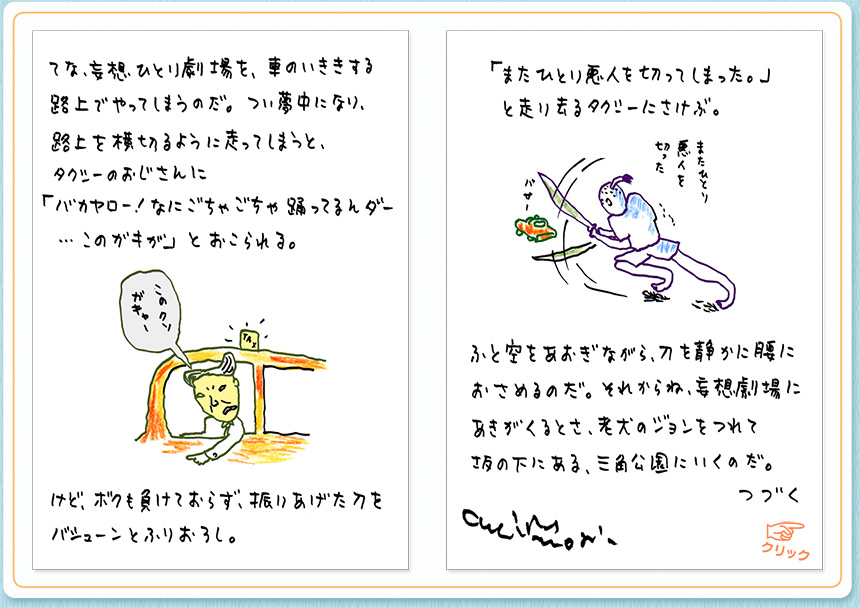 てな、妄想ひとり劇場を、車のいききする
路上でやってしまうのだ。つい夢中になり、
路上を横切るように走ってしまうと、
タクシーのおじさんに
「バカヤロー！なにごちゃごちゃ踊ってるんダー
…このガキが」とおこられる。
このクソ
ガキャー
TAX
けど、ボクも負けておらず、振りあげた刀を
バシューンとふりおろし。
「またひとり悪人を切ってしまった。」
と走り去るタクシーにさけぶ。
またひとり
悪人を
切った
バサー
ふと空をあおぎながら、刀を静かに腰に
おさめるのだ。それからね、妄想劇場に
あきがくるとさ、老犬のジョンをつれて
坂の下にある、三角公園にいくのだ。
つづく
クリック